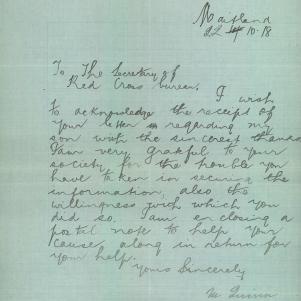 Maitland
22 10.18
To The Secretary of
Red Cross Bureau.
I wish
to acknowledge the receipt of
your letter regarding my
son with the sincerest thanks
I am very grateful to your
society for the trouble you
have taken in securing the
information, also the
willingness with which you
did so. I am enclosing a
postal note to help your
cause, along in return for
your help.
Yours Sincerely
M